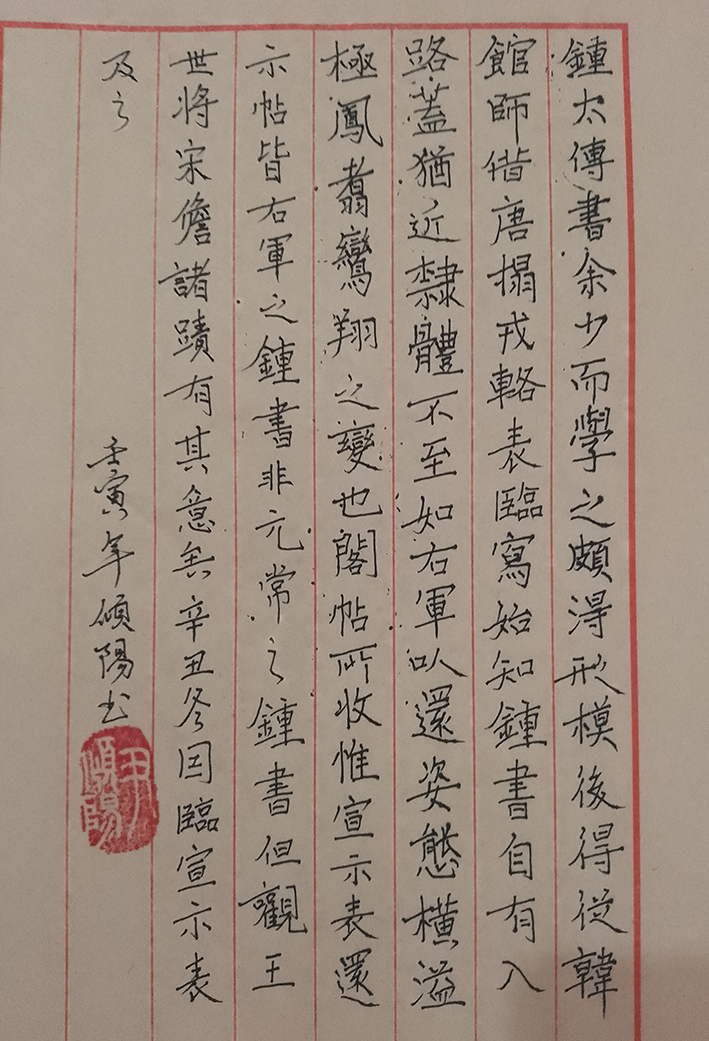 鍾太傅書余少而學之頗淂形模後得從韓
館師借唐搨戎輅表臨寫始知鍾書自有入
路蓋猶近隸體不至如右軍以還姿態橫溢
極鳳翥鸞翔之變也閣帖所收惟宣示表還
示帖皆右軍之鍾書非元常之鍾書但觀王
世将宋儋諸蹟有其意矣辛丑冬因臨宣示表
及之
壬寅年傾陽书
傾陽